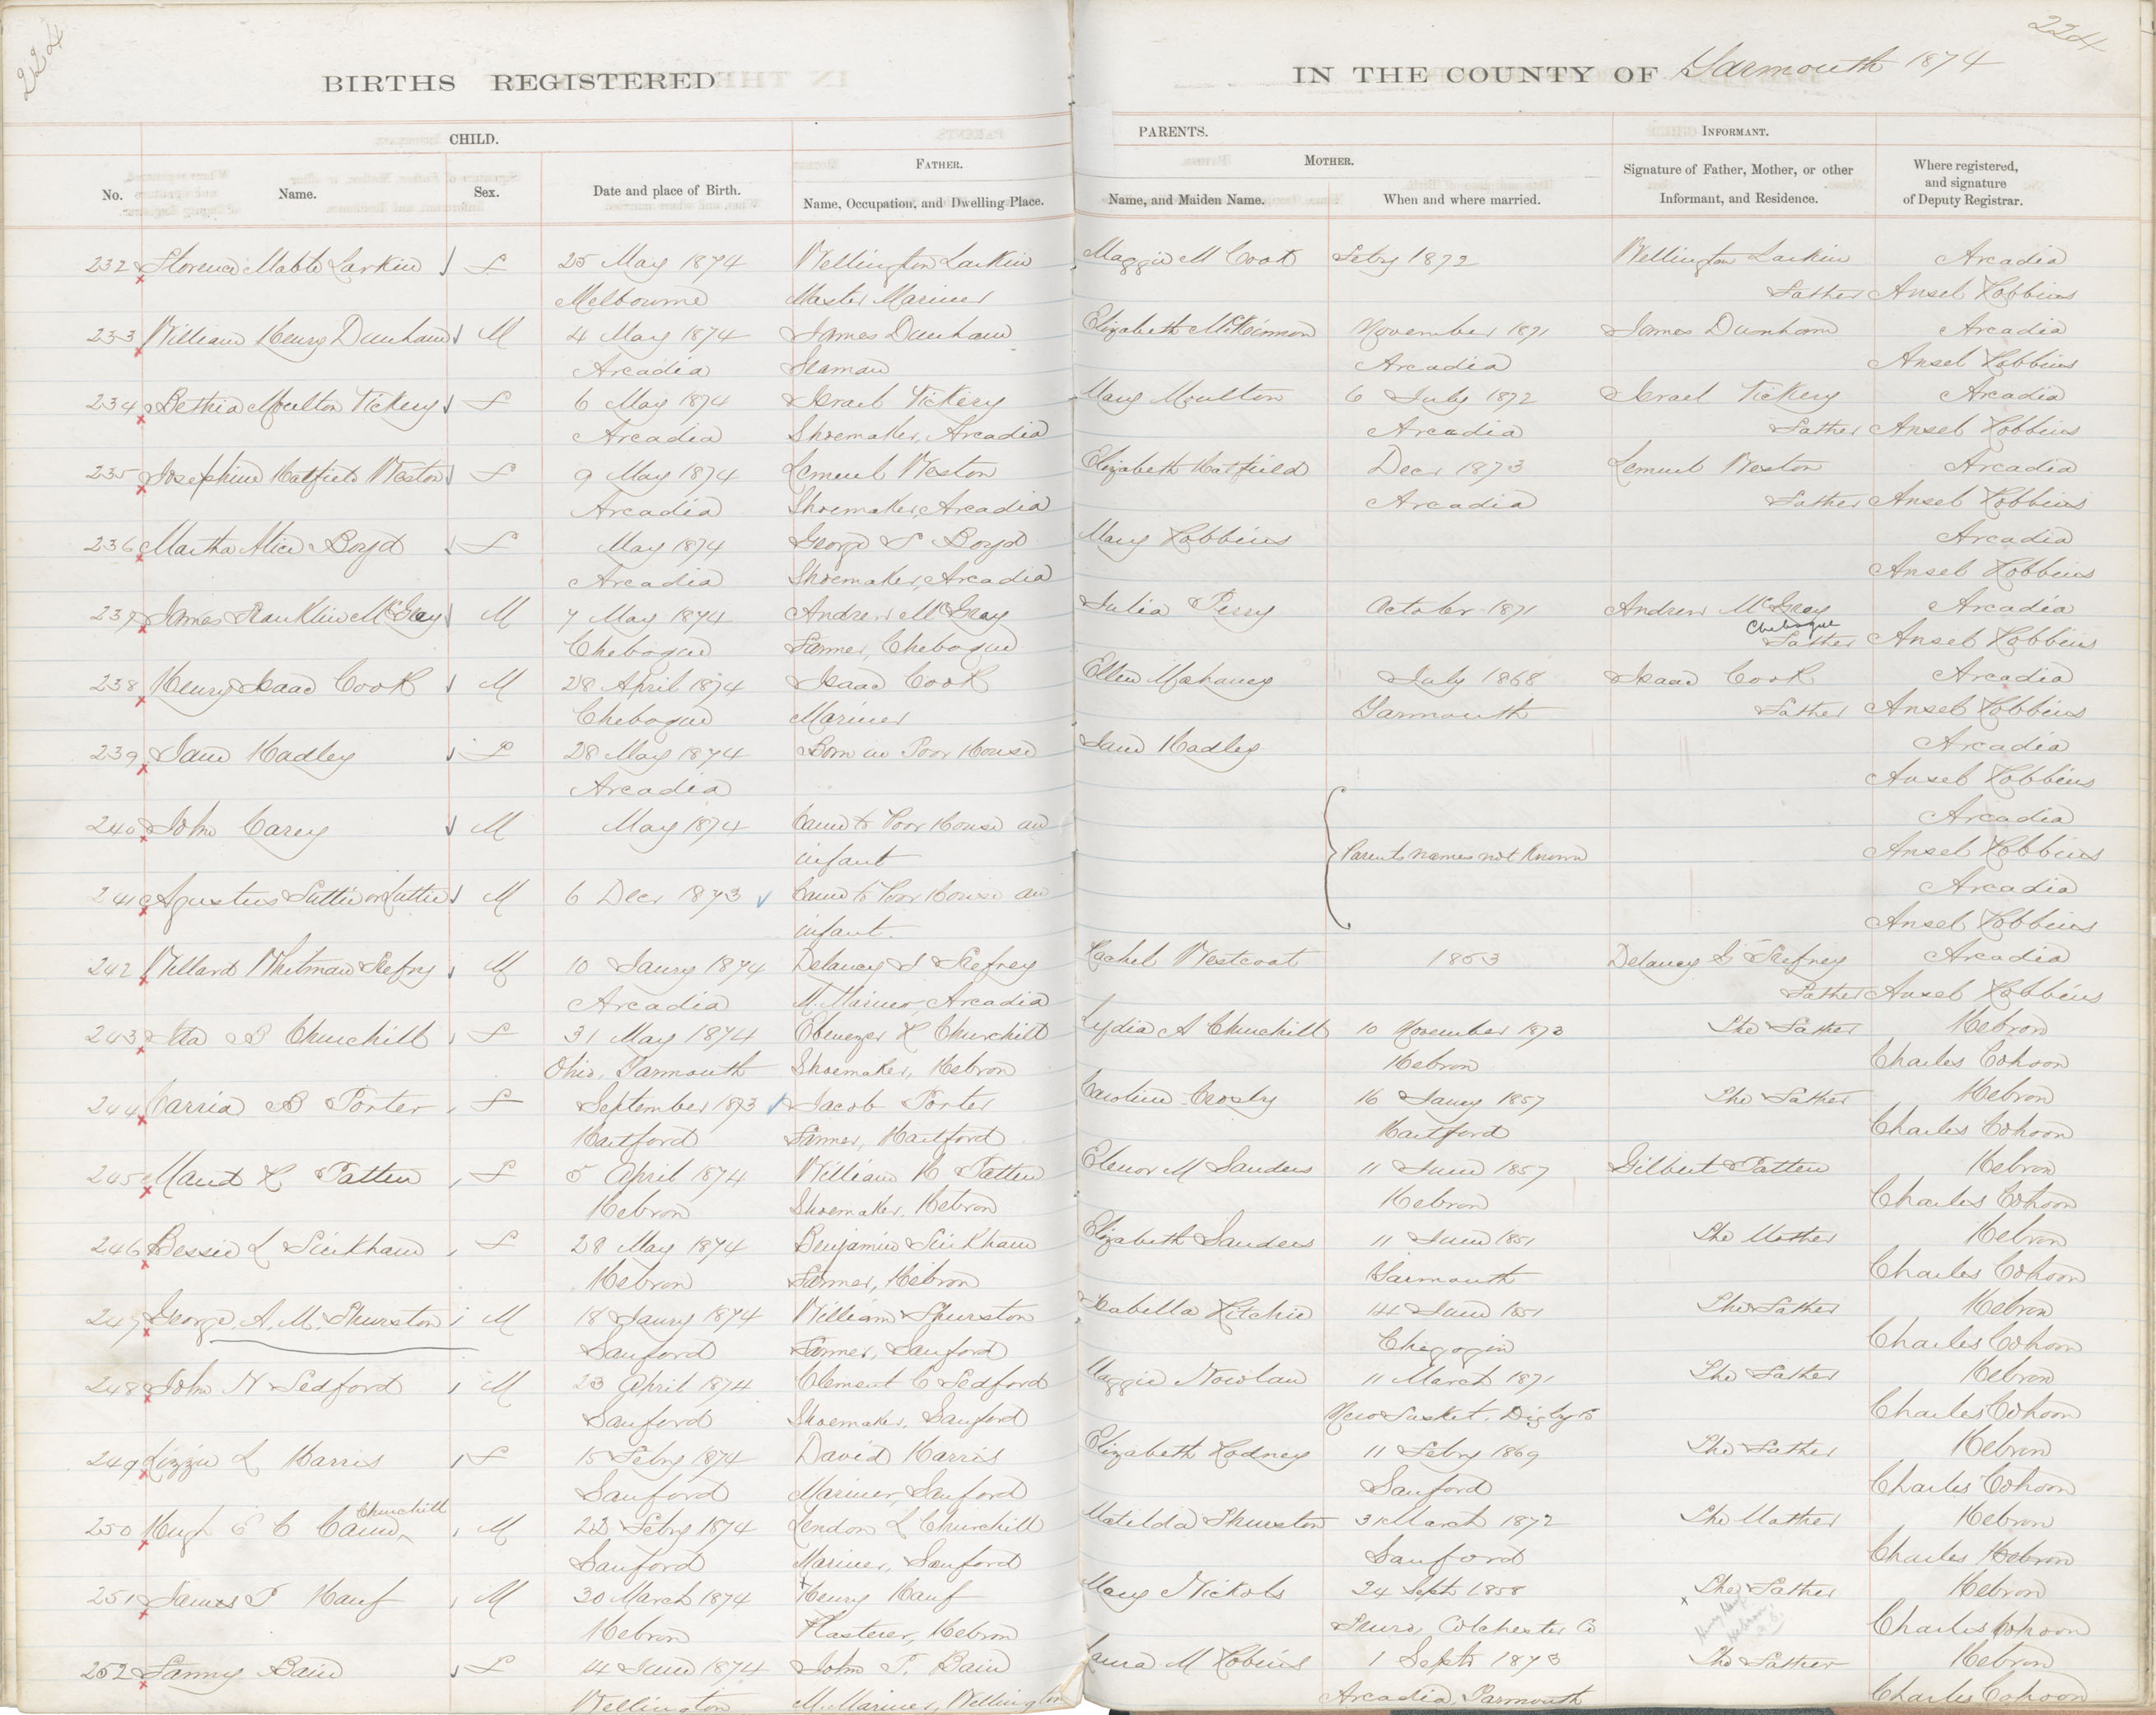 224
224
BIRTHS REGISTERED
IN THE COUNTY OF Yarmouth 1874
CHILD.
PARENTS.
INFORMANT.
FATHER.
MOTHER.
No. Name. Sex. Date and place of Birth. Name, Occupation, and Dwelling Place. Name, and Maiden Name. When and where married. Signature of Father, Mother, or other Informant, and Residence. Where registered, and signature of Deputy Registrar.
232 Florence Mable Larkin F 25 May 1874 Wellington Larkin Maggie M Cook Feby 1872 Wellington Larkin Arcadia
Melbourne Master Mariner Father Ansel Robbins
233 William Henry Dunham M 4 May 1874 James Dunham Elizabeth McKinnon November 1871 James Dunham Arcadia
Arcadia Seaman Arcadia Ansel Robbins
234 Bethia Moulton Vickery F 6 May 1874 Israel Vickery Mary Moulton 6 July 1872 Israel Vickery Arcadia
Arcadia Shoemaker, Arcadia Arcadia Father Ansel Robbins
235 Josephine Hatfield Weston F 9 May 1874 Lemuel Weston Elizabeth Hatfield Decr 1873 Lemuel Weston Arcadia
Arcadia Shoemaker, Arcadia Arcadia Father Ansel Robbins
236 Martha Alice Boyd F May 1874 George S Boyd Mary Robbins Arcadia
Arcadia Shoemaker, Arcadia Ansel Robbins
237 James Franklin McGray M 7 May 1874 Andrew McGray Julia Perry October 1871 Andrew McGray Arcadia
Chebogue Farmer, Chebogue Chebogue Father Ansel Robbins
238 Henry Isaac Cook M 28 April 1874 Isaac Cook Ellen Mahaney July 1868 Isaac Cook Arcadia
Chebogue Mariner Yarmouth Father Ansel Robbins
239 Jane Hadley F 28 May 1874 Born in Poor House Jane Hadley Arcadia
Arcadia Ansel Robbins
240 John Carey M May 1874 Came to Poor House an Arcadia
infant Parents names not known Ansel Robbins
241 Agustus or M 6 Decr 1873 Came to Poor House an Arcadia
infant. Ansel Robbins
242 Willard Whitman Trefry M 10 Jany 1874 Delancy S Trefrey Rachel Westcoat 1853 Delancy S Trefrey Arcadia
Arcadia M. Mariner, Arcadia Father Ansel Robbins
243 Ita B Churchill F 31 May 1874 Ebenezer R Churchill Lydia A Churchill 10 November 1873 The Father Hebron
Ohio, Yarmouth Shoemaker, Hebron Hebron Charles Cohoon
244 Carria B Porter F September 1873 Jacob Porter Caroline Crosby 16 Jany 1857 The Father Hebron
Hartford Farmer, Hartford Hartford Charles Cohoon
245 Maud R Patten F 5 April 1874 William H Patten Elenor M Sanders 11 June 1857 Gilbert Patten Hebron
Hebron Shoemaker, Hebron Hebron Charles Cohoon
246 Bessie L F 28 May 1874 Benjamin Elizabeth Sanders 11 June 1851 The Mother Hebron
Hebron Farmer, Hebron Yarmouth Charles Cohoon
247 George A. M. Thurston M 18 Jany 1874 William Thurston Isabella Ritchie 14 June 1851 The Father Hebron
Sanford Farmer, Sanford Chegogin Charles Cohoon
248 John N Tedford M 23 April 1874 Clement C Tedford Maggie Nowlan 11 March 1871 The Father Hebron
Sanford Shoemaker, Sanford New Tusket, Digby Co Charles Cohoon
249 Lizzie L Harris F 15 Feby 1874 David Harris Elizabeth Rodney 11 Feby 1869 The Father Hebron
Sanford Mariner, Sanford Sanford Charles Cohoon
Churchill
250 Hugh E C Cann M 22 Feby 1874 Lendon L Churchill Matilda Thurston 31 March 1872 The Mother Hebron
Sanford Mariner, Sanford Sanford Charles Hebron
251 James T Hauf M 30 March 1874 Henry Hauf Mary Nickols 24 Sept 1858 The Father Hebron
Hebron Plasterer, Hebron Truro, Colchester Co Charles Cohoon
252 Fanny Bain F 14 June 1874 John T. Bain Laura M Robins 1 Sept 1873 The Father Hebron
Wellington M. Mariner, Wellington Arcadia, Yarmouth Charles Cohoon